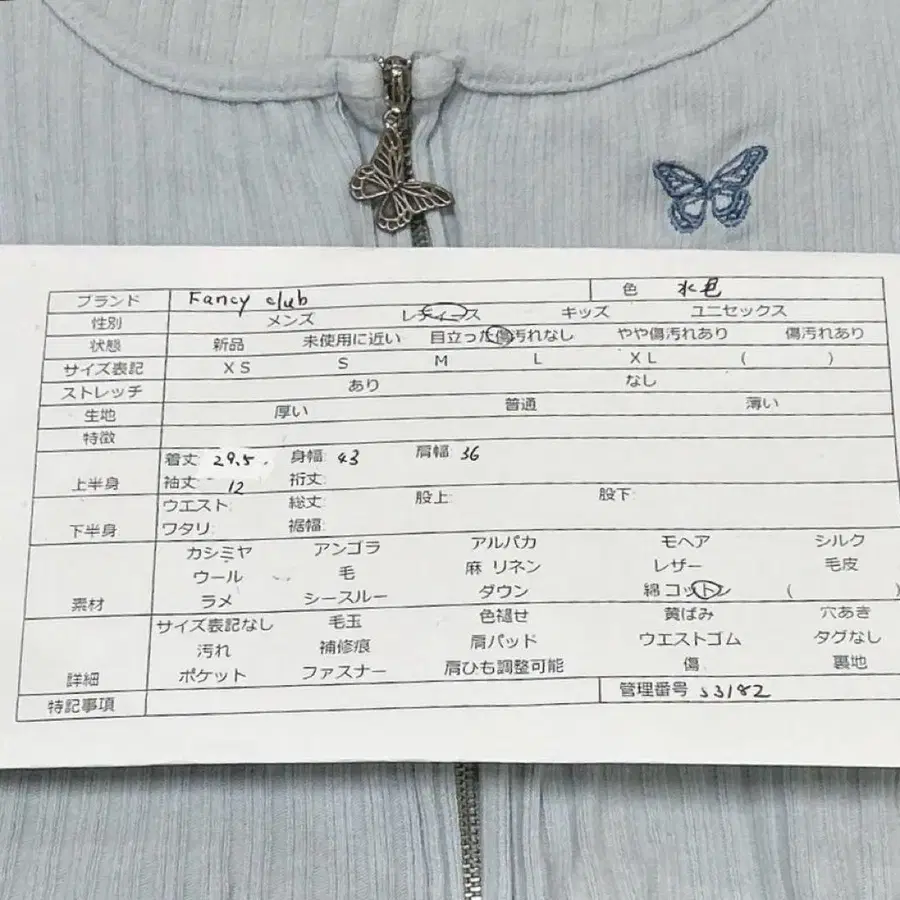 ブランド Fancy club 色 水色
性別 メンズ レディース キッズ ユニセックス
状態 新品 未使用に近い 目立った傷汚れなし やや傷汚れあり 傷汚れあり
サイズ表記 XS S M L XL ( )
ストレッチ あり なし
生地 厚い 普通 薄い
特徴
上半身 着丈 29.5 身幅 43 肩幅 36
袖丈 12 裄丈
下半身 ウエスト 総丈 股上 股下
ワタリ 裾幅
素材 カシミヤ アンゴラ アルパカ モヘア シルク
ウール 毛 麻 リネン レザー 毛皮
ラメ シースルー ダウン 綿 コットン ( )
詳細 サイズ表記なし 毛玉 色褪せ 黄ばみ 穴あき
汚れ 補修痕 肩パッド ウエストゴム タグなし
ポケット ファスナー 肩ひも調整可能 傷 裏地
特記事項 管理番号 S3182